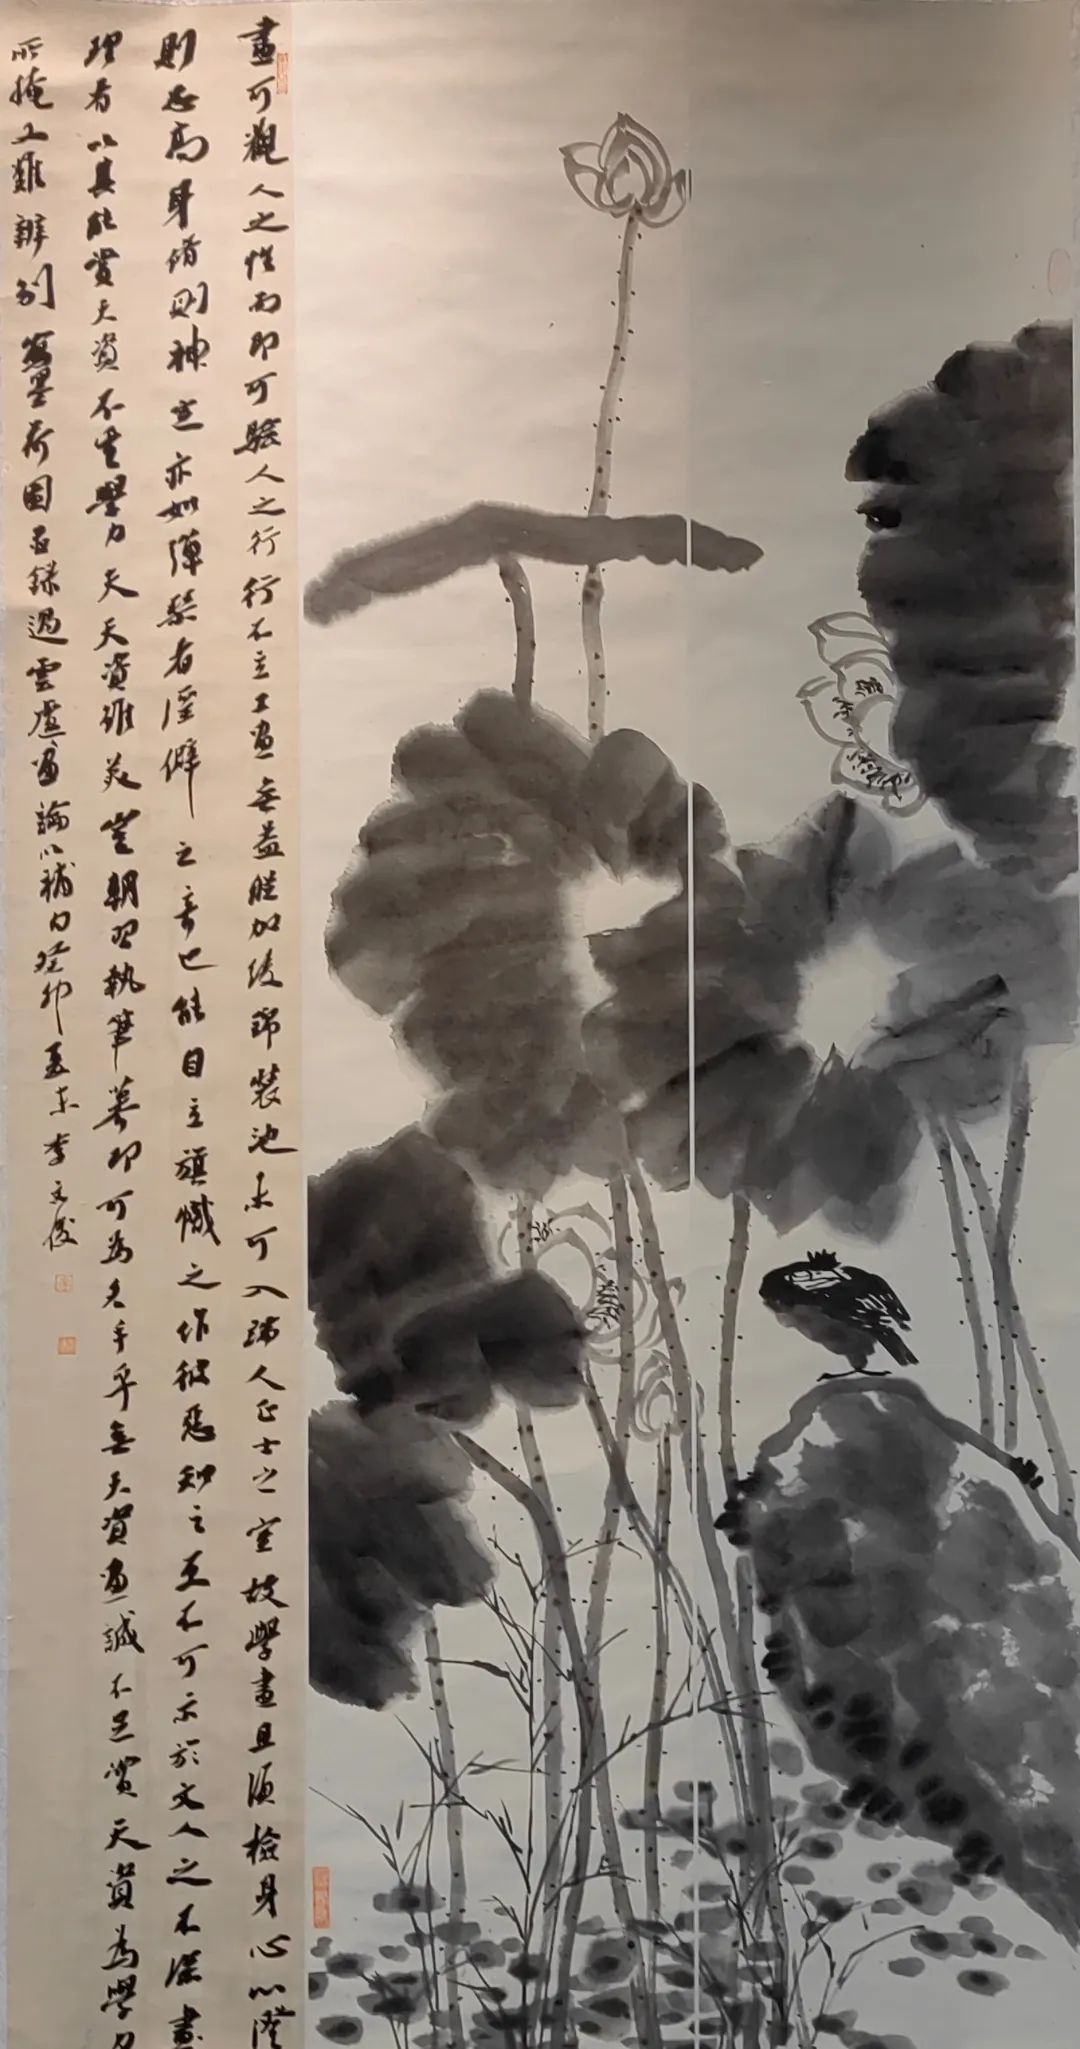 畫可觀人之性而即可驗人之行行不立工畫無益雖加綾錦裝池未可入端人正士之室故學畫且須檢身心以澄
則志高身脩則神 亦如彈琴者淫僻之音已能自立旗幟之作彼惡知之至不可示於文人之不深畫
理者以其能賞天資不賞學力夫天資雖美豈朝習執筆暮即可為名手乎無天資畫誠不足賞天資為學力
所掩工難辨別寫墨荷圖並錄過雲廬畫論以補白癸卯 李文俊